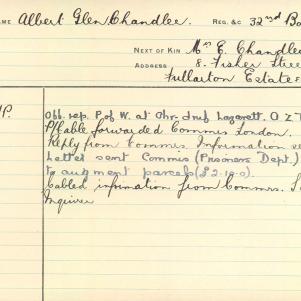 AME Albert Glen Chandler. REG. &c 32nd Ba
NEXT OF KIN Mrs E. Chandle
ADDRESS 8. Fisher Stree
Fullarton Estate
Off. rep. P of W. at Ohrdruf Lazarett. O Z T
forwarded Commrs London.
Reply from Commrs Information
Letter sent Commrs (Prisoners Dept.)
to augment parcels (£2.10.0)
Cabled information from Commrs.
Inquirer